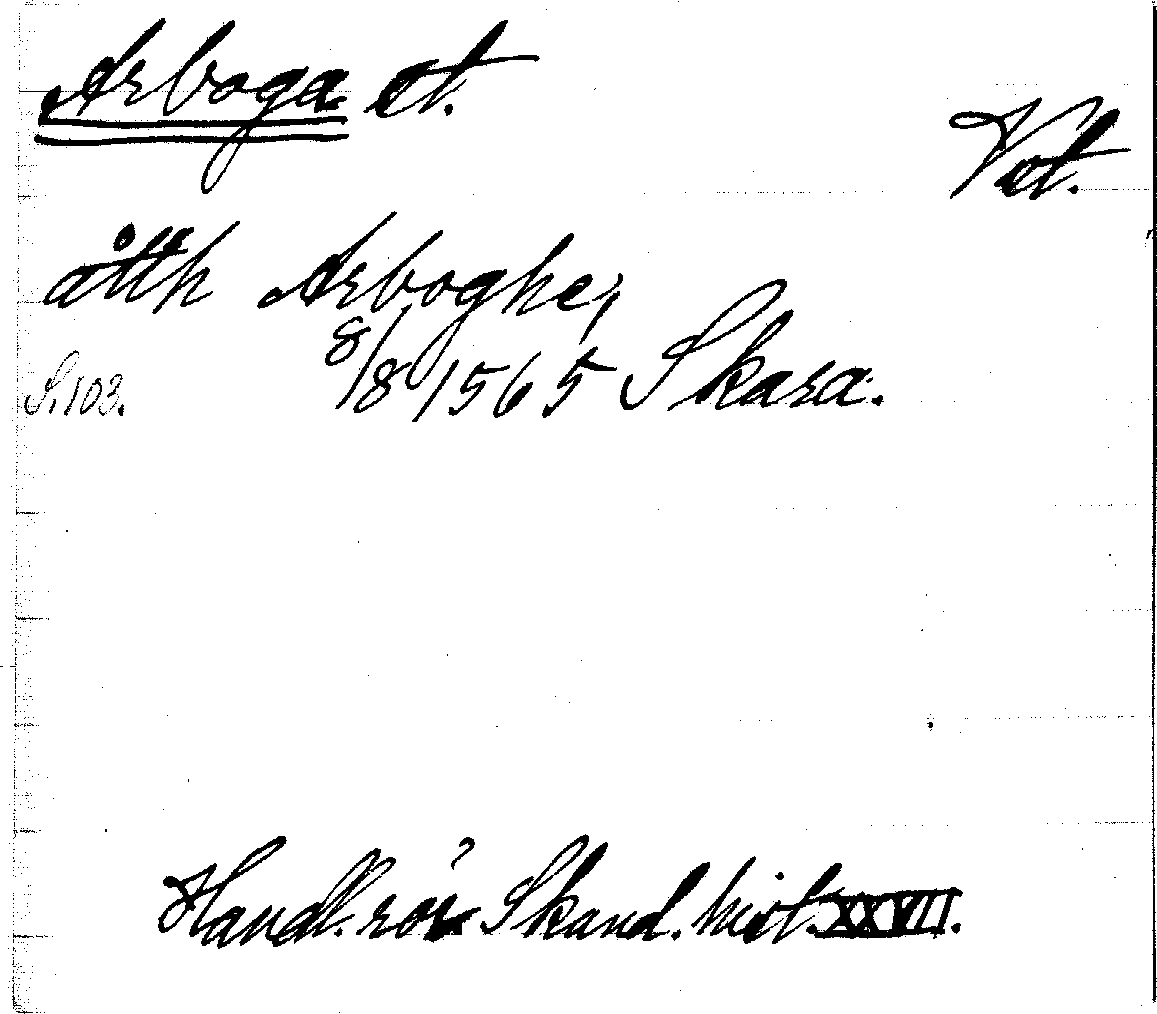 Arboga st.
Vst.
åt Arboghe,
S. 103. 8/8 1565 Skara.
Handl. rör Skand. hist. XXVII.